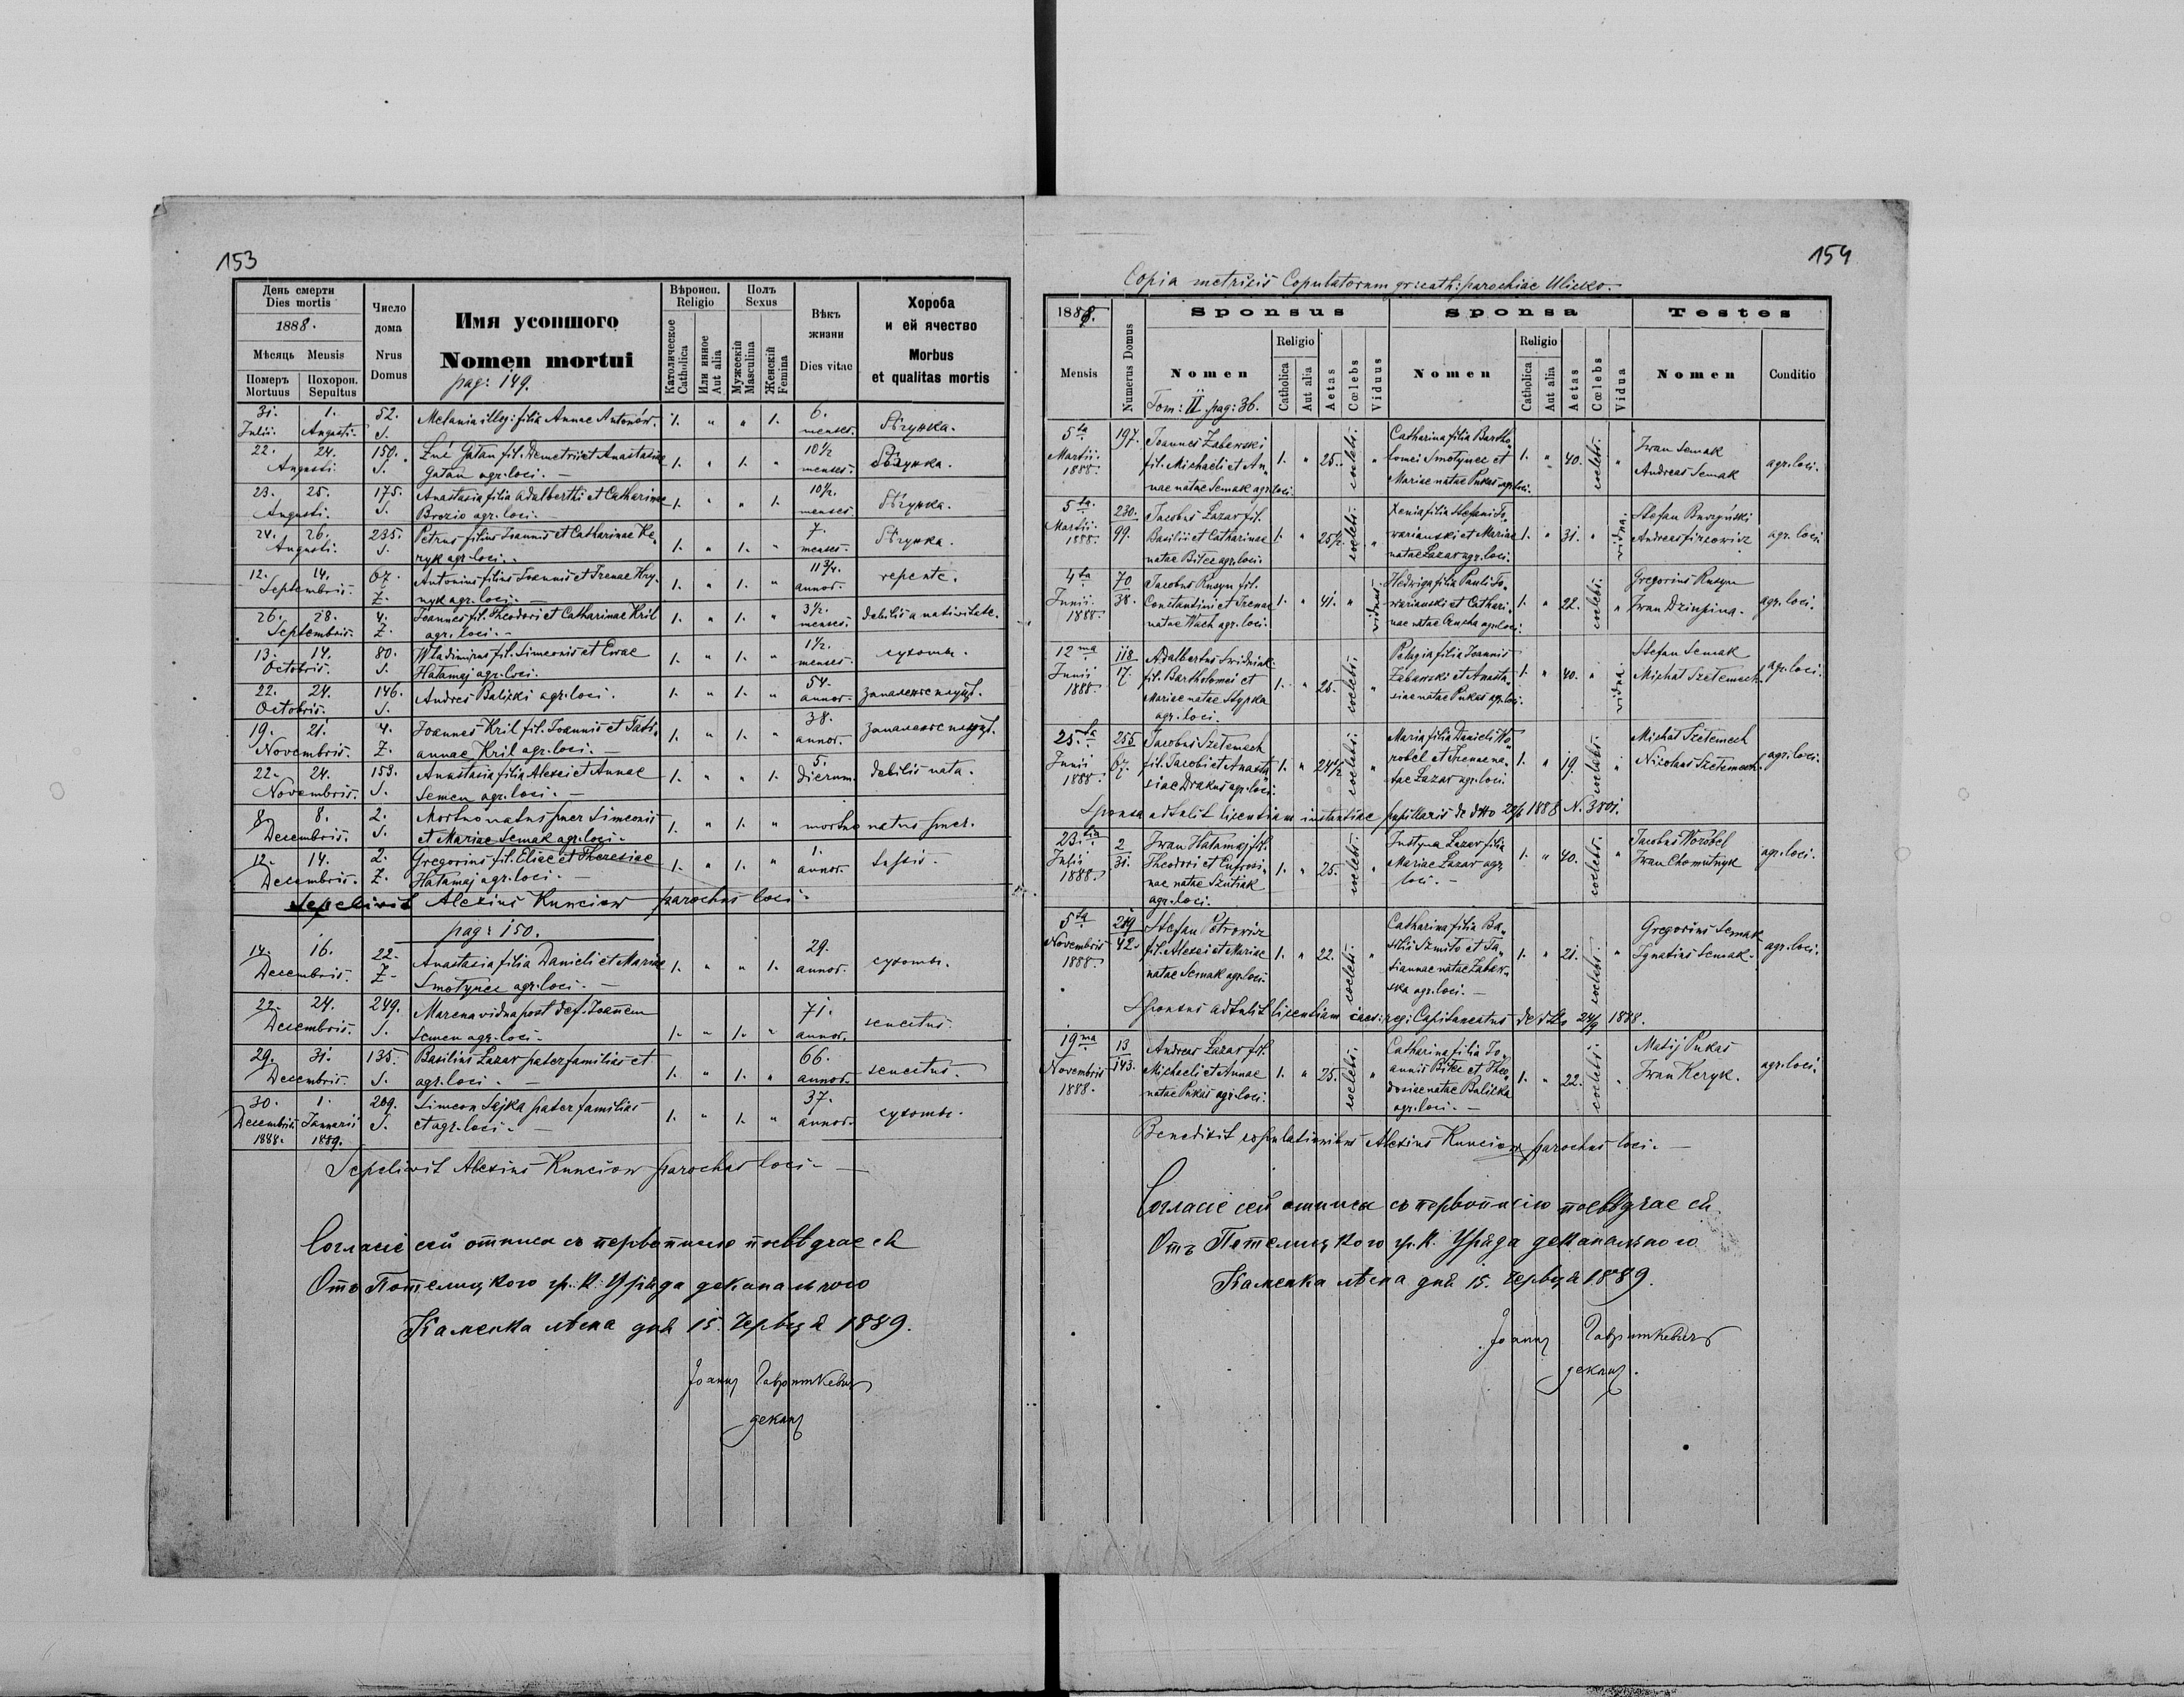 153
День смерти
Dies mortis
1888.
Мѣсяць Mensis
Померъ Mortuus
Похорон. Sepultus
Число дома
Nrus Domus
Имя усопшого
Nomen mortui
pag: 149.
Вѣроисп.
Religio
Католическое Catholica
Или инное Aut alia
Полъ
Sexus
Мужескій Masculina
Женскій Femina
Вѣкъ жизни
Dies vitae
Хороба
и ей ячество
Morbus
et qualitas mortis
31. 1. 52. Melania illeg: filia Annae Antonów. 1. " " 1. 6.
Julii. Augusti. S. menses. Бѣгунка.
22. 24. 150. Luć Gatan fil. Demetrii et Anastasiae 1. " 1. " 10½
Augusti. S. Gatan agr. loci. — menses. Бѣгунка.
23. 25. 175. Anastasia filia Adalberthi et Catharinae 1. " " 1. 10½.
Augusti. S. Brozio agr. loci. — menses. Бѣгунка.
24. 26. 235. Petrus filius Ioannis et Catharinae Ke„ 1. " 1. " 7.
Augusti. S. ryk agr. loci. — menses. Бѣгунка.
12. 14. 67. Antonius filius Ioannis et Irenae Hry„ 1. " 1. " 11¾.
Septembris. Z. nyk agr. loci. — annor. repente.
26. 28. 4. Ioannes fil. Theodori et Catharinae Kril 1. " 1. " 3½.
Septembris. Z. agr. loci. — menses. debilis a nativitate.
13. 14. 80. Wladimirus fil. Simeonis et Evae 1. " 1. " 1½.
Octobris. S. Hatamaj agr. loci. menses. сухоты.
22. 24. 146. Andres Balicki agr. loci. 1. " 1. " 54.
Octobris. S. annor. запаленіе плуцъ.
19. 21. 4. Ioannes Kril fil. Ioannis et Tati„ 1. " 1. " 38.
Novembris. Z. annae Kril agr. loci. — annor. запаленіе плуцъ.
22. 24. 153. Anastasia filia Alexei et Annae 1. " " 1. 5.
Novembris. S. Semen agr. loci. — dierum. debilis nata.
8. 8. 2. Mortuo natus puer Simeonis 1. " 1. "
Decembris. S. et Mariae Semak agr. loci. mortuo natus puer.
12. 14. 2. Gregorius fil. Eliae et Theresiae 1. " 1. " 1.
Decembris. Z. Hatamaj agr. loci. — annor. tussis.
Sepelivit Alexius Kunciow parochus loci.
pag: 150.
14. 16. 22. Anastasia filia Danieli et Mariae 1. " " 1. 29.
Decembris. Z. Smotynec agr. loci. — annor. сухоты.
22. 24. 249. Marena vidua post def. Ioannem 71.
Decembris. S. Semen agr. loci. 1. " 1. " annor. senectus.
29. 31. 135. Basilius Lazar pater familias et 66.
Decembris. S. agr. loci. — 1. " 1. " annor. senectus.
30. 1. 209. Simeon Sajka pater familias 37.
Decembris Januarii S. et agr. loci. — 1. " 1. " annor. сухоты.
1888. 1889.
Sepelivit Alexius Kunciow parochus loci. —
Согласіе сей отписи съ первописію посвѣдчае ся
Отъ Потелицкого гр. к. Уряда деканального
Каменка лѣсна дня 15. Червця 1889.
Іоаннъ
деканъ
154
Copia metricis Copulatorum gr: cath: parochiae Uliczko.
1888.
Mensis
Numerus Domus
Sponsus
Nomen
Tom: II. pag: 36.
Religio
Catholica
Aut alia
Aetas
Cœlebs
Viduus
Sponsa
Nomen
Religio
Catholica
Aut alia
Aetas
Cœlebs
Vidua
Testes
Nomen
Conditio
5ta Martii. 1888. 197. Ioannes Zabawski
fil. Michaeli et An„
nae natae Semak agr. loci. 1. " 25. coelebs. "
Catharina filia Bartho„
lomei Smotynec et
Mariae natae Pukas agr. loci. 1. " 40. coelebs. "
Iwan Semak
Andreas Semak agr. loci.
5ta Martii. 1888. 230. 99. Iacobus Lazar fil.
Basilii et Catharinae
natae Bitez agr. loci. 1. " 25½. coelebs. "
Xenia filia Stefani To„
warianski et Mariae
natae Lazar agr. loci. 1. " 31. " vidua.
Stefan Burzyński
Andreas Firsowicz agr. loci.
4ta Junii. 1888. 70 38. Iacobus Rusyn fil.
Constantini et Irenae
natae Wach agr. loci. 1. " 41. " viduus.
Hedwiga filia Pauli To„
warianski et Cathari„
nae natae agr. loci. 1. " 22. coelebs. "
Gregorius Rusyn
Iwan Dziupina. agr. loci.
12ma Junii 1888. 118 17. Adalbertus Swidnink
fil. Bartholomei et
Mariae natae Styrka
agr. loci. 1. " 25. coelebs. "
Pelagia filia Ioannis
Zabawski et Anasta„
siae natae Pukas agr. loci. 1. " 40. " vidua.
Stefan Semak
Michał Szetemech. agr. loci.
25ta Junii 1888. 255 67. Iacobus Szetemech
fil. Iacobi et Anasta„
siae Drakus agr. loci. 1. " 24½. coelebs. "
Maria filia Danieli Wo„
robel et Irenae na„
tae Lazar agr. loci. 1. " 19. coelebs. "
Michał Szetemech
Nicolaus Szetemech. agr. loci.
Sponsa adtulit licentiam instantiae pupillaris de dtto 22/6 1888 N. 3501.
23tia Julii 1888. 2 31. Iwan Hatamaj fil.
Theodori et Eufrosi„
nae natae Szutiak
agr. loci. 1. " 25. coelebs. "
Justyna Lazar filia
Mariae Lazar agr.
loci. — 1. " 40. coelebs. "
Iacobus Worobel
Iwan Chomutnyk agr. loci.
5ta Novembris 1888. 219 42. Stefan Petrowicz
fil. Alexei et Mariae
natae Semak agr. loci. 1. " 22. coelebs. "
Catharina filia Ba„
silii Szmito et Ta„
tiannae natae Zabaw„
ska agr. loci. — 1. " 21. coelebs. "
Gregorius Semak
Ignatius Semak. agr. loci.
Sponsus adtulit licentiam caes: reg: Capitaneatus de dtto 24/9 1888.
19ma Novembris 1888. 13 143. Andreas Lazar fil.
Michaeli et Annae
natae Pukas agr. loci. 1. " 25. coelebs. "
Catharina filia Io„
annis Bitez et Theo„
dosiae natae Balicka
agr. loci. — 1. " 22. coelebs. "
Matij Pukas
Iwan Keryk. agr. loci.
Benedixit copulationibus Alexius Kunciow parochus loci. —
Согласіе сей отписи съ первописію посвѣдчае ся
Отъ Потелицкого гр. к. Уряда деканального
Каменка лѣсна дня 15. Червця 1889.
Іоаннъ
деканъ.